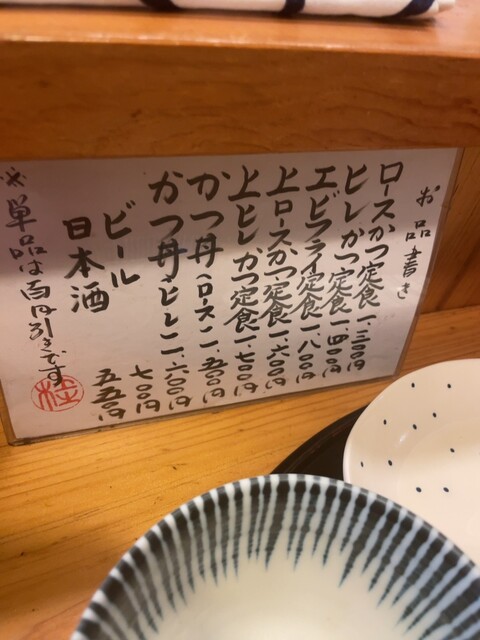 お品書き
ロースかつ定食 一、三〇〇円
ヒレかつ定食 一、四〇〇円
エビフライ定食 一、八〇〇円
上ロースかつ定食 一、六〇〇円
上ヒレかつ定食 一、七〇〇円
かつ丼(ロース) 一、五〇〇円
かつ丼(ヒレ) 一、六〇〇円
ビール 七〇〇円
日本酒 五五〇円
※単品は百円引きです